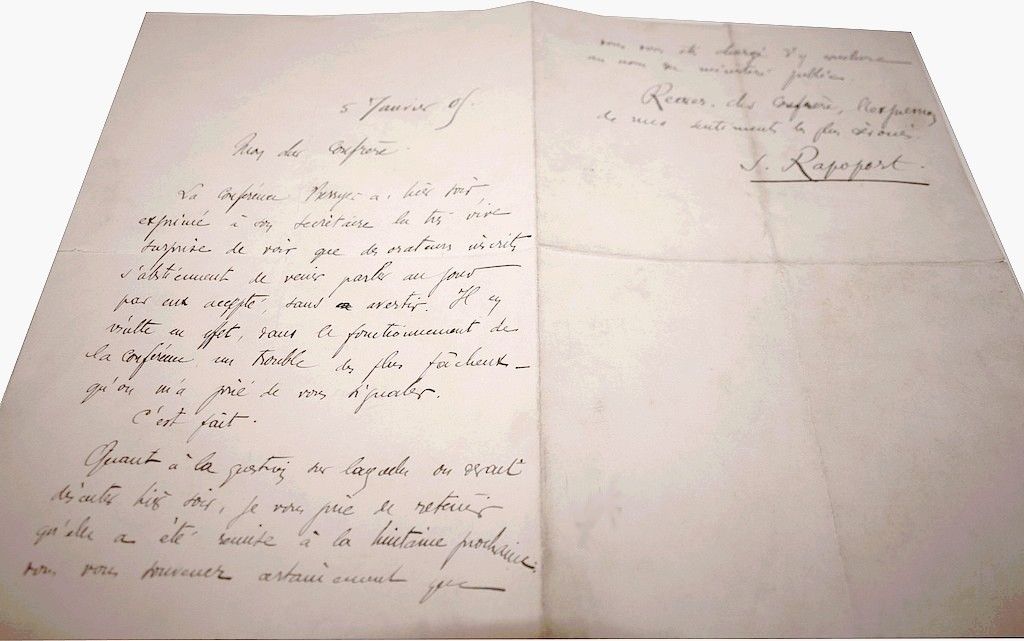 5 Janvier 05.
Mon cher confrère.
La conférence Berryer a, hier soir
exprimé à son secrétaire la très vive
surprise de voir que des orateurs inscrits
s'abstiennent de venir parler au jour
par eux accepté, sans avertir. Il en
résulte en effet, dans le fonctionnement de
la conférence un trouble des plus fâcheux
qu'on m'a prié de vous signaler.
C'est fait.
Quant à la question sur laquelle on devait
discuter hier soir, je vous prie de retenir
qu'elle a été remise à la huitaine prochaine.
vous vous souvenez certainement que
vous avez été chargé d'y
au nom du ministère public.
Recevez, cher confrère, l'expression
de mes sentiments les plus dévoués
J. Rapoport.